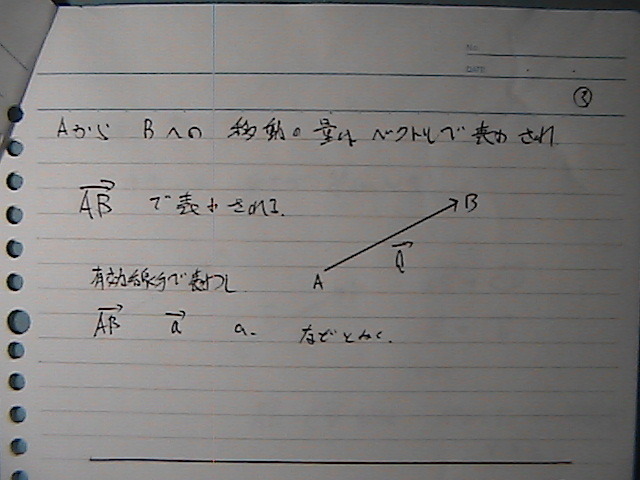 No.
DATE
③
AからBへの移動の量はベクトルで表わされ
AB で表わされる.
B
a
A
有効線分で表わし
AB a a. などとかく.